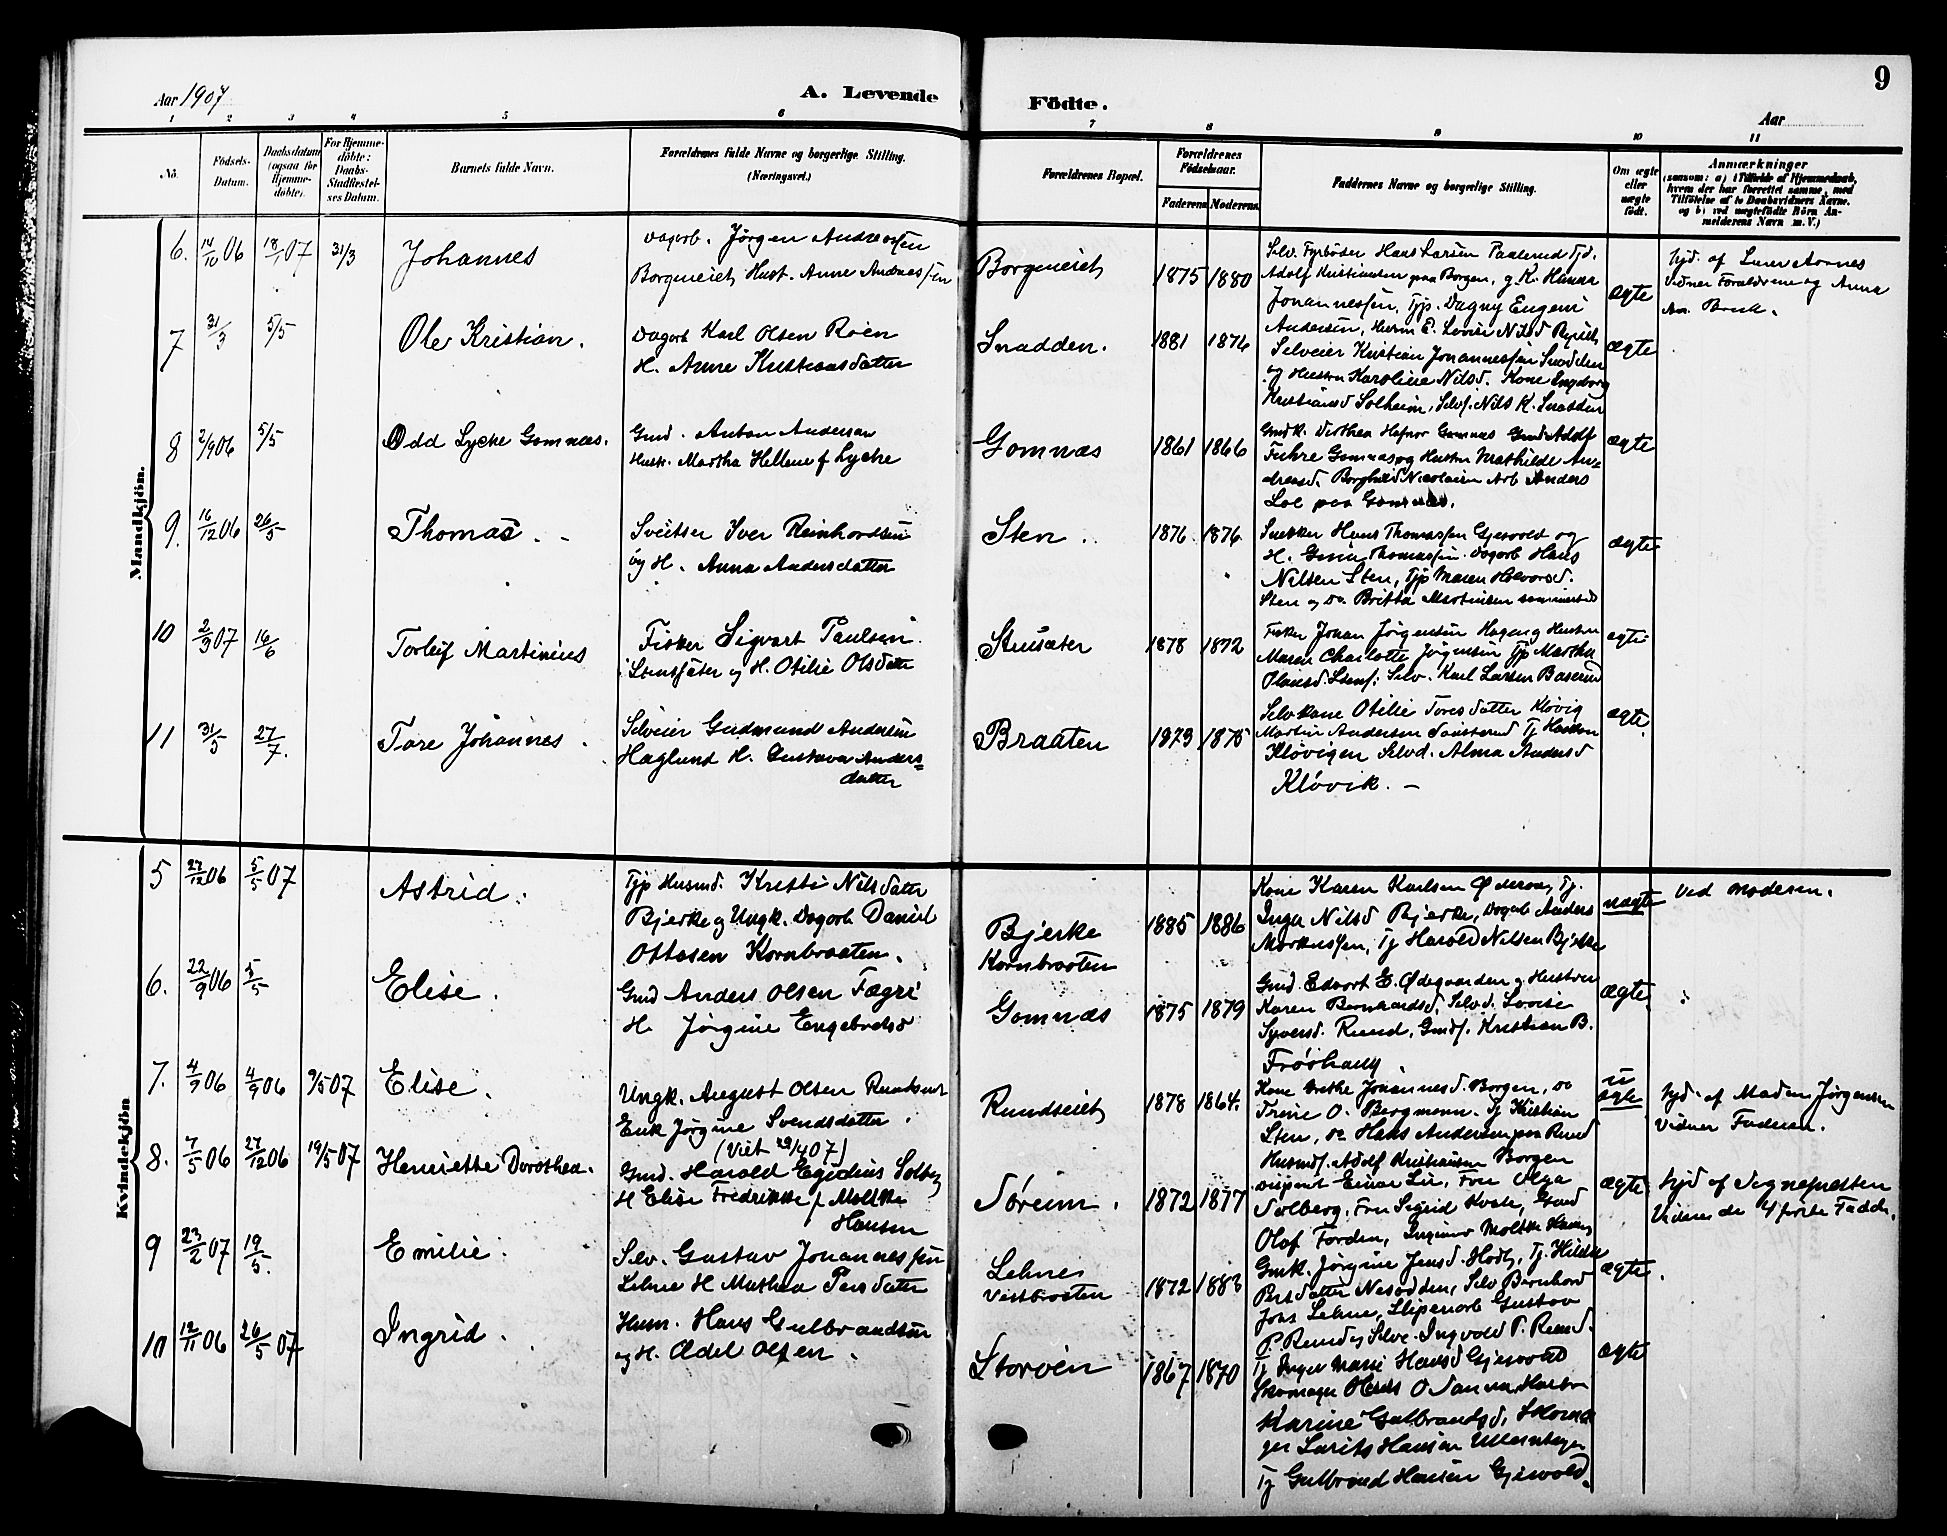 9
Aar 1907
A. Levende
Födte.
Aar
1 2 3 4 5 6 7 8 9 10 11
No.
Födsels-Datum.
Daabsdatum (ogsaa for Hjemme-döbte).
For Hjemme-döbte: Daabs-Stadfæstel-ses Datum.
Barnets fulde Navn.
Forældrenes fulde Navne og borgerlige Stilling.
(Næringsvei.)
Forældrenes Bopæl.
Forældrenes Födselsaar.
Faderens Moderens
Faddernes Navne og borgerlige Stilling.
Om ægte eller uægte födt.
Anmærkninger
(saasom: a) i Tilfælde af Hjemmedaab,
hvem der har forrettet samme, med
Tilföielse af to Daabsvidners Navne,
og b) ved uægtefödte Börn An-
melderens Navn m. V.)
Mandkjön.
6. 14/10 06 18/1 07 31/3 Johannes
Dagarb. Jørgen Andreassen
Borgeneiet, Hust. Anne Andreassen
Borgeneiet 1875 1880
Selv. Fyrbøder Hans Larsen
Adolf Kristiansen paa Borgen, g. K. Hanna
Johannessen, Tjp. Dagny Eugeni
ægte
Hjd. af
Vidner Forældrene og Anna
7 31/3 5/5 Ole Kristian.
Dagarb Karl Olsen Roen
H. Anne Kristiansdatter
Snadden. 1881 1876
Andersen,
Selveier Kristian Johannessen Snadden
og Hustru Karoline Nilsd. Kone Ingeborg
Kristiansd Solheim, Selvs. Nils K. Snadden
ægte
8 2/9 06 5/5 Odd Lycke Gomnæs.
Gmd. Anton Andersen
Hustr. Martha Hellene f Lycke
Gomnæs 1861 1866
Gmdk. Dorthea Gomnæs Gmd Adolf
Fuhre Gomnæs og Hustru Mathilde An=
dreasd. Borghild Nicolaisen Arb Anders
Loe paa Gomnæs.
ægte
9. 16/12 06 26/5 Thomas.
Sveitser Iver Reinhardsen
og H. Anna Andersdatter
Sten. 1876 1876
Snekker Hans Thomassen Gjesvold og
H. Gina Thomassen. Dagarb Hans
Nilsen Sten, Tjp Maren Halvorsd.
Sten og Do. Britta Martinsen
ægte
10 2/3 07 16/6 Torleif Martinius
Fisker Sigvart Paulsen
i Stensæter og H. Otilie Olsdatter
Stensæter 1878 1872
Fisker Johan Jørgensen Hagen og Hustru
Maren Charlotte Jørgensen Tjp Martha
Olausd. Stens. Selv. Karl Larsen Baserud
ægte
11 31/5 27/7. Tore Johannes
Selveier Gudmund Andersen
Haglund H. Gustava Anders=
datter
Braaten 1873 1875
Selvkone Otilie Toresdatter Kløvig
Martin Andersen Tj Haakon
Kløvigen Selvd. Alma Andersd
Kløvik. —
ægte.
Kvindekjön
5 27/12 06 5/5 07 Astrid.
Tjp Husmd. Kristi Nilsdatter
Bjerke og Ungk. Dagarb Daniel
Ottosen Kornbraaten.
Bjerke
Kornbraaten
1885 1886
Kone Karen Karlsen Tj.
Inga Nilsd Bjerke, Dagarb Anders
Markussen, Tj Harald Nilsen Bjerke
uægte
Ved Moderen.
6. 22/9 06 5/5 Elise.
Gmd Anders Olsen Fægri
H. Jørgine Engebretsd
Gomnæs 1875 1879
Gmd. Edvart E. Ødegaarden og Hustru
Karen Bernhardsd. Selvd. Lovise
Syversd. Rund, Gmds. Kristian B.
Frøshaug.
ægte.
7. 4/9 06 4/9 06 9/5 07 Elise.
Ungk. August Olsen
Enk Jørgine Svendsdatter.
Rundseiet 1878 1864.
Kone Grethe Johannesd. Borgen, do
Trine O. Bergmann. Tj Kristian
Sten, do Hans Andersen paa Rund
Husmds. Adolf Kristiansen Borgen
u
ægte
Hjd. af Madam Jørgensen
Vidner Faderen.
8. 7/5 06 27/12 06 19/5 07 Henriette Dorothea.
(Viet 29/4 07)
Gmd. Harald Egidius Solberg
H Elise Fredrikke f Moltke
Hansen
Søreim. 1872 1877
Einar Lie, Fru Olga
Solberg, Fru Sigrid Kvale, Gmd
Olaf Forden, Ingeniør Moltke Hansen
ægte
Hjd af Sognepresten
Vidner de 4 første Fadd.
9 23/2 07 19/5. Emilie.
Selv. Gustav Johannessen
Lehne H Mathea Persdatter
Lehne
Vestbraaten
1872 1883
Gmk. Jørgine Jensd. Tj. Hilda
Persdatter Nesodden, Selv Bernhard
Johs Lehne, Sliperiarb Gustav
P. Rund og Selve. Ingvald P. Rund.
ægte.
10 12/11 06 26/5 07 Ingrid.
Husm. Hans Gulbrandsen
og H. Edel Olsen.
Storøen 1867 1870
Tj Inger Marie Hansd Gjesvold
Skomager
Karine Gulbrandsd. Skoma
ger Laurits Hansen
Tj Gulbrand Hansen Gjesvold.
ægte